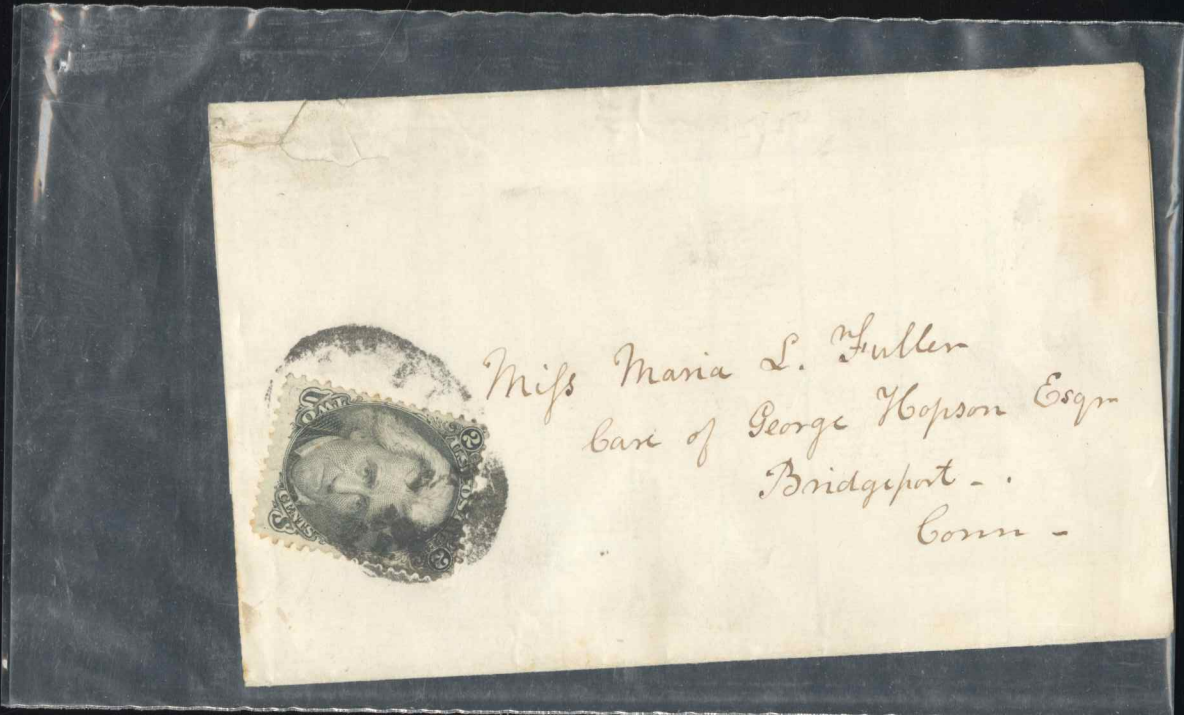 Miss Maria L. Fuller
Care of George Hopson Esqr
Bridgeport - .
Conn -
U 2
TWO
CENTS
2